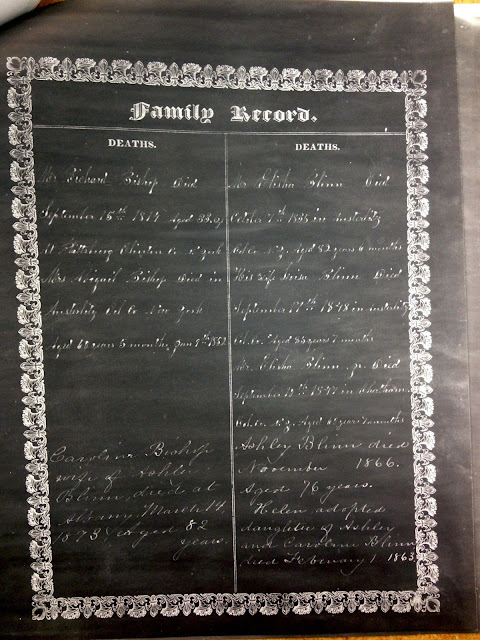 Family Record.
DEATHS.
Mr. Richard Bishop Died
September 15th 1814 Aged 38 y
At Plattsburg Clinton Co. N. york
Mrs Abigail Bishop Died in
Austerlitz Col. Co New york
Aged 69 years 5 months, Jan 9th 1852
Caroline Bishop
wife of Ashley
Blinn, died at
Albany March 14
1873 Aged 82
years.
DEATHS.
Mr. Elisha Blinn Died
October 7th 1835 in Austerlitz
Col. Co. N.y. Aged 82 years 6 months
His wife Blinn Died
September 17th 1848 in Austerlitz
Col. Co. Aged years 7 months
Mr. Elisha Blinn jr. Died
September 1847 in Chatham
Col. Co. N.y. Aged years months
Ashley Blinn died
November 1866.
Aged 76 years.
Helen adopted
daughter of Ashley
and Caroline Blinn
died February 1 1863